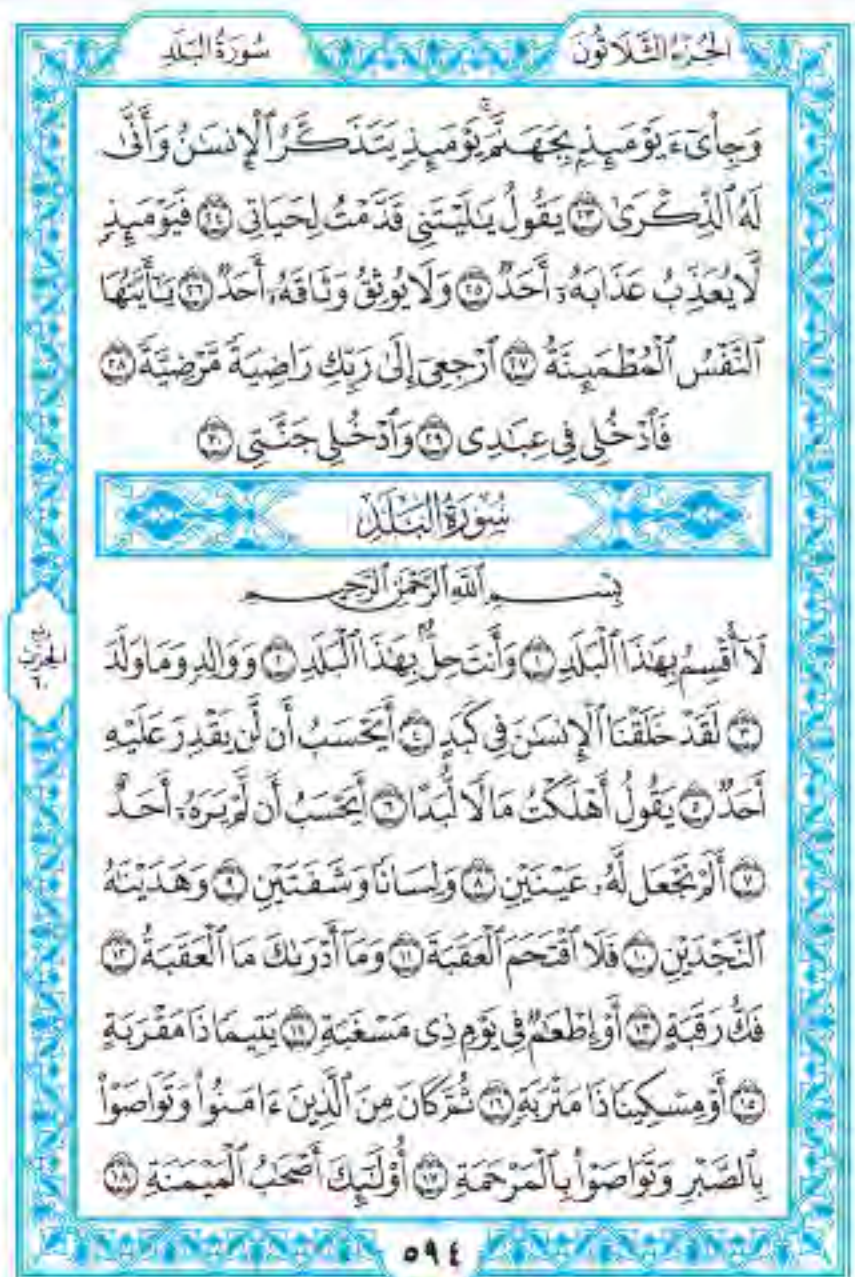 سُورَةُ البَلَدِ
الجُزْءُ الثَّلَاثُونَ
وَجِاْىٓءَ يَوْمَئِذِۭ بِجَهَنَّمَۚ يَوْمَئِذٍ يَتَذَكَّرُ ٱلْإِنسَٰنُ وَأَنَّىٰ
لَهُ ٱلذِّكْرَىٰ ٢٣ يَقُولُ يَٰلَيْتَنِى قَدَّمْتُ لِحَيَاتِى ٢٤ فَيَوْمَئِذٍ
لَّا يُعَذِّبُ عَذَابَهُۥٓ أَحَدٌ ٢٥ وَلَا يُوثِقُ وَثَاقَهُۥٓ أَحَدٌ ٢٦ يَٰٓأَيَّتُهَا
ٱلنَّفْسُ ٱلْمُطْمَئِنَّةُ ٢٧ ٱرْجِعِىٓ إِلَىٰ رَبِّكِ رَاضِيَةً مَّرْضِيَّةً ٢٨
فَٱدْخُلِى فِى عِبَٰدِى ٢٩ وَٱدْخُلِى جَنَّتِى ٣٠
سُورَةُ البَلَدِ
بِسْمِ ٱللَّهِ ٱلرَّحْمَٰنِ ٱلرَّحِيمِ
لَآ أُقْسِمُ بِهَٰذَا ٱلْبَلَدِ ١ وَأَنتَ حِلٌّۢ بِهَٰذَا ٱلْبَلَدِ ٢ وَوَالِدٍ وَمَا وَلَدَ
٣ لَقَدْ خَلَقْنَا ٱلْإِنسَٰنَ فِى كَبَدٍ ٤ أَيَحْسَبُ أَن لَّن يَقْدِرَ عَلَيْهِ
أَحَدٌ ٥ يَقُولُ أَهْلَكْتُ مَالًا لُّبَدًا ٦ أَيَحْسَبُ أَن لَّمْ يَرَهُۥٓ أَحَدٌ
٧ أَلَمْ نَجْعَل لَّهُۥ عَيْنَيْنِ ٨ وَلِسَانًا وَشَفَتَيْنِ ٩ وَهَدَيْنَٰهُ
ٱلنَّجْدَيْنِ ١٠ فَلَا ٱقْتَحَمَ ٱلْعَقَبَةَ ١١ وَمَآ أَدْرَىٰكَ مَا ٱلْعَقَبَةُ ١٢
فَكُّ رَقَبَةٍ ١٣ أَوْ إِطْعَٰمٌ فِى يَوْمٍ ذِى مَسْغَبَةٍ ١٤ يَتِيمًا ذَا مَقْرَبَةٍ
١٥ أَوْ مِسْكِينًا ذَا مَتْرَبَةٍ ١٦ ثُمَّ كَانَ مِنَ ٱلَّذِينَ ءَامَنُوا۟ وَتَوَاصَوْا۟
بِٱلصَّبْرِ وَتَوَاصَوْا۟ بِٱلْمَرْحَمَةِ ١٧ أُو۟لَٰٓئِكَ أَصْحَٰبُ ٱلْمَيْمَنَةِ ١٨
الحِزْبِ
٦٠
٥٩٤